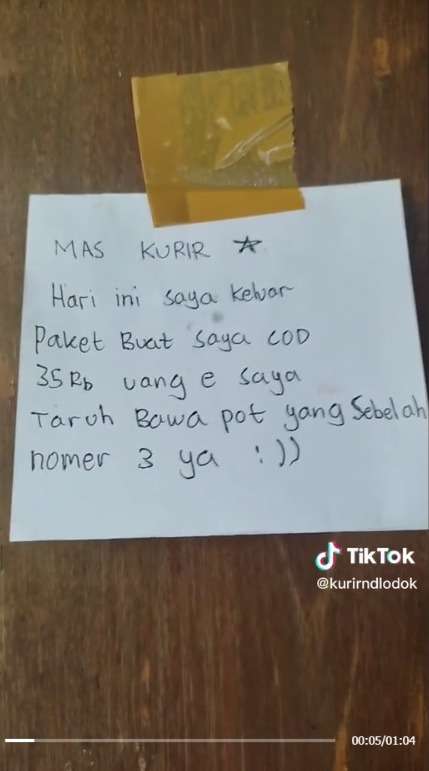 MAS KURIR ☆
Hari ini saya keluar
Paket Buat saya COD
35 Rb uang e saya
Taruh Bawa pot yang Sebelah
nomer 3 ya :))
TikTok
@kurirndlodok
00:05/01:04